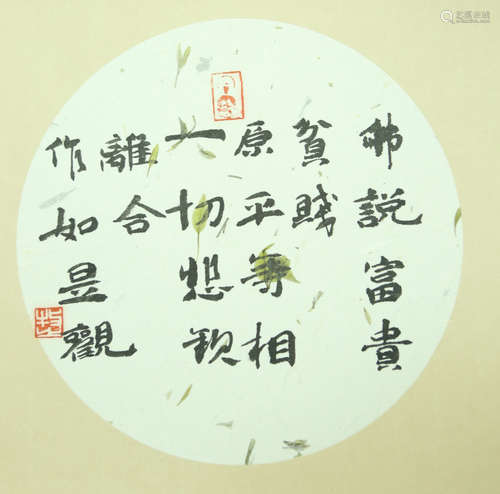 佛說富貴
貧賤
原平等相
一切悲歡
離合
作如是觀